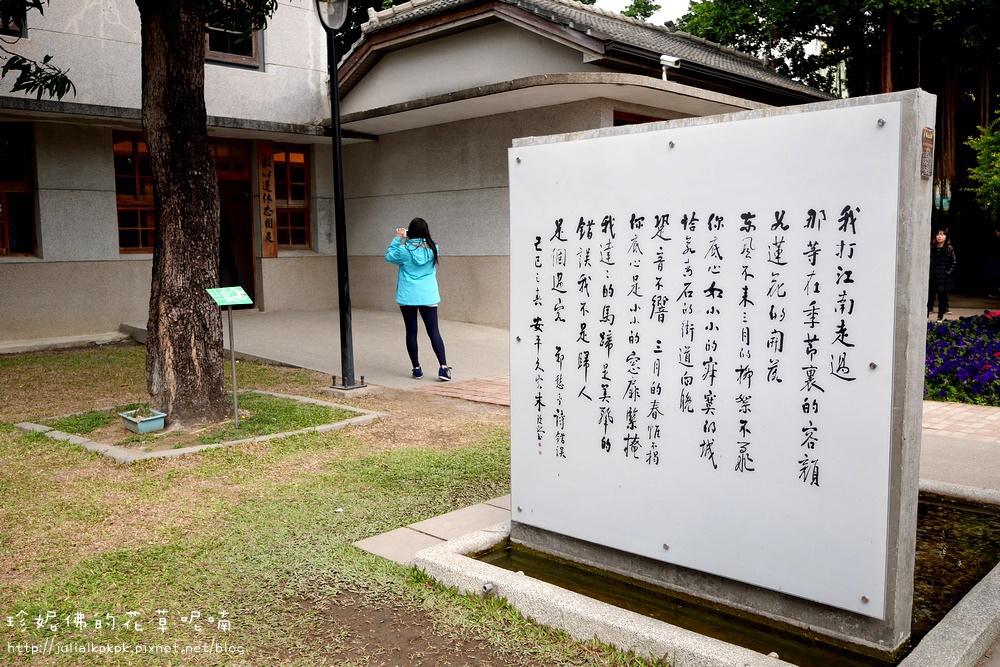 我打江南走過
那等在季節裏的容顏
如蓮花的開落
東風不來三月的柳絮不飛
你底心如小小的寂寞的城
恰若青石的街道向晚
跫音不響 三月的春帷不揭
你底心是小小的窗扉緊掩
我達達的馬蹄是美麗的
錯誤我不是歸人
是個過客 鄭愁予詩錯誤
珍妮佛的花草呢喃
http://julialkpkpk.pixnet.net/blog